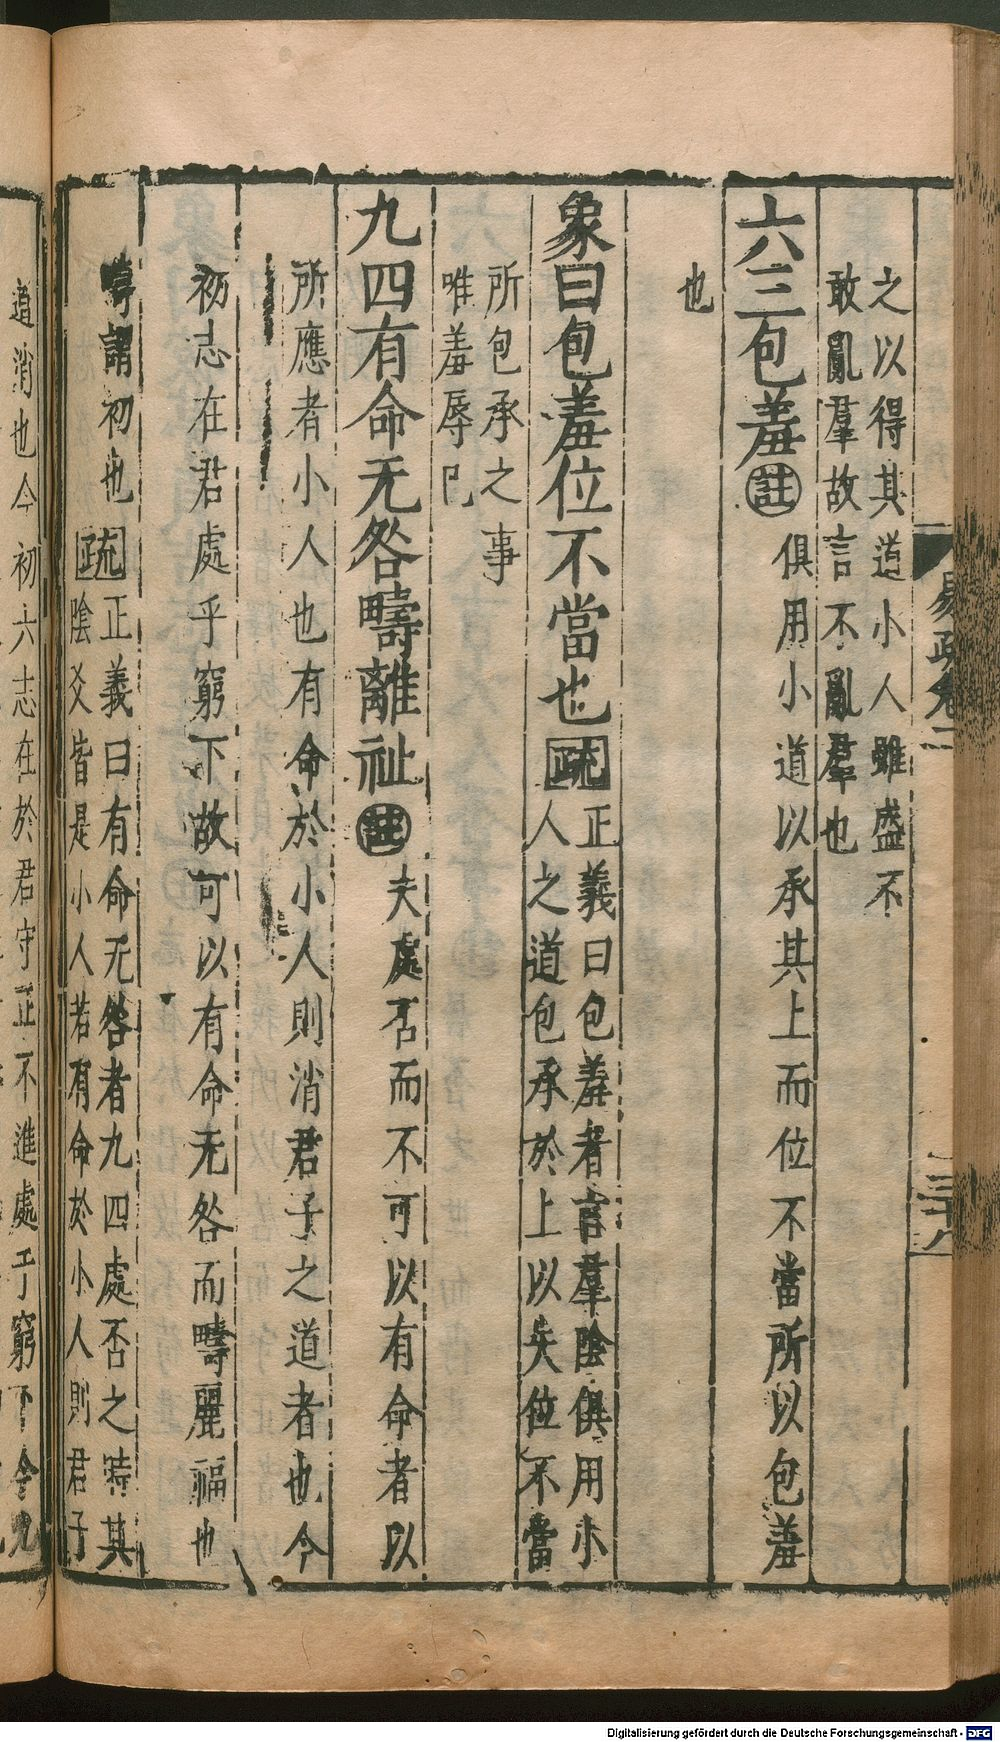 之以得其道小人雖盛不
敢亂羣故言不亂羣也
六三包羞註俱用小道以承其上而位不當所以包羞
也
象曰包羞位不當也疏正義曰包羞者言羣陰俱用小
人之道包承於上以失位不當
所包承之事
唯羞辱已
九四有命无咎疇離祉註夫處否而不可以有命者以
所應者小人也有命於小人則消君子之道者也今
初志在君處乎窮下故可以有命无咎而疇麗福也
疇謂初也疏正義曰有命无咎者九四處否之時其
陰爻皆是小人若有命於小人則君子
道消也今初六志在於君守正不進處于窮下今九
易疏卷二
三十八
Digitalisierung gefördert durch die Deutsche Forschungsgemeinschaft - DFG